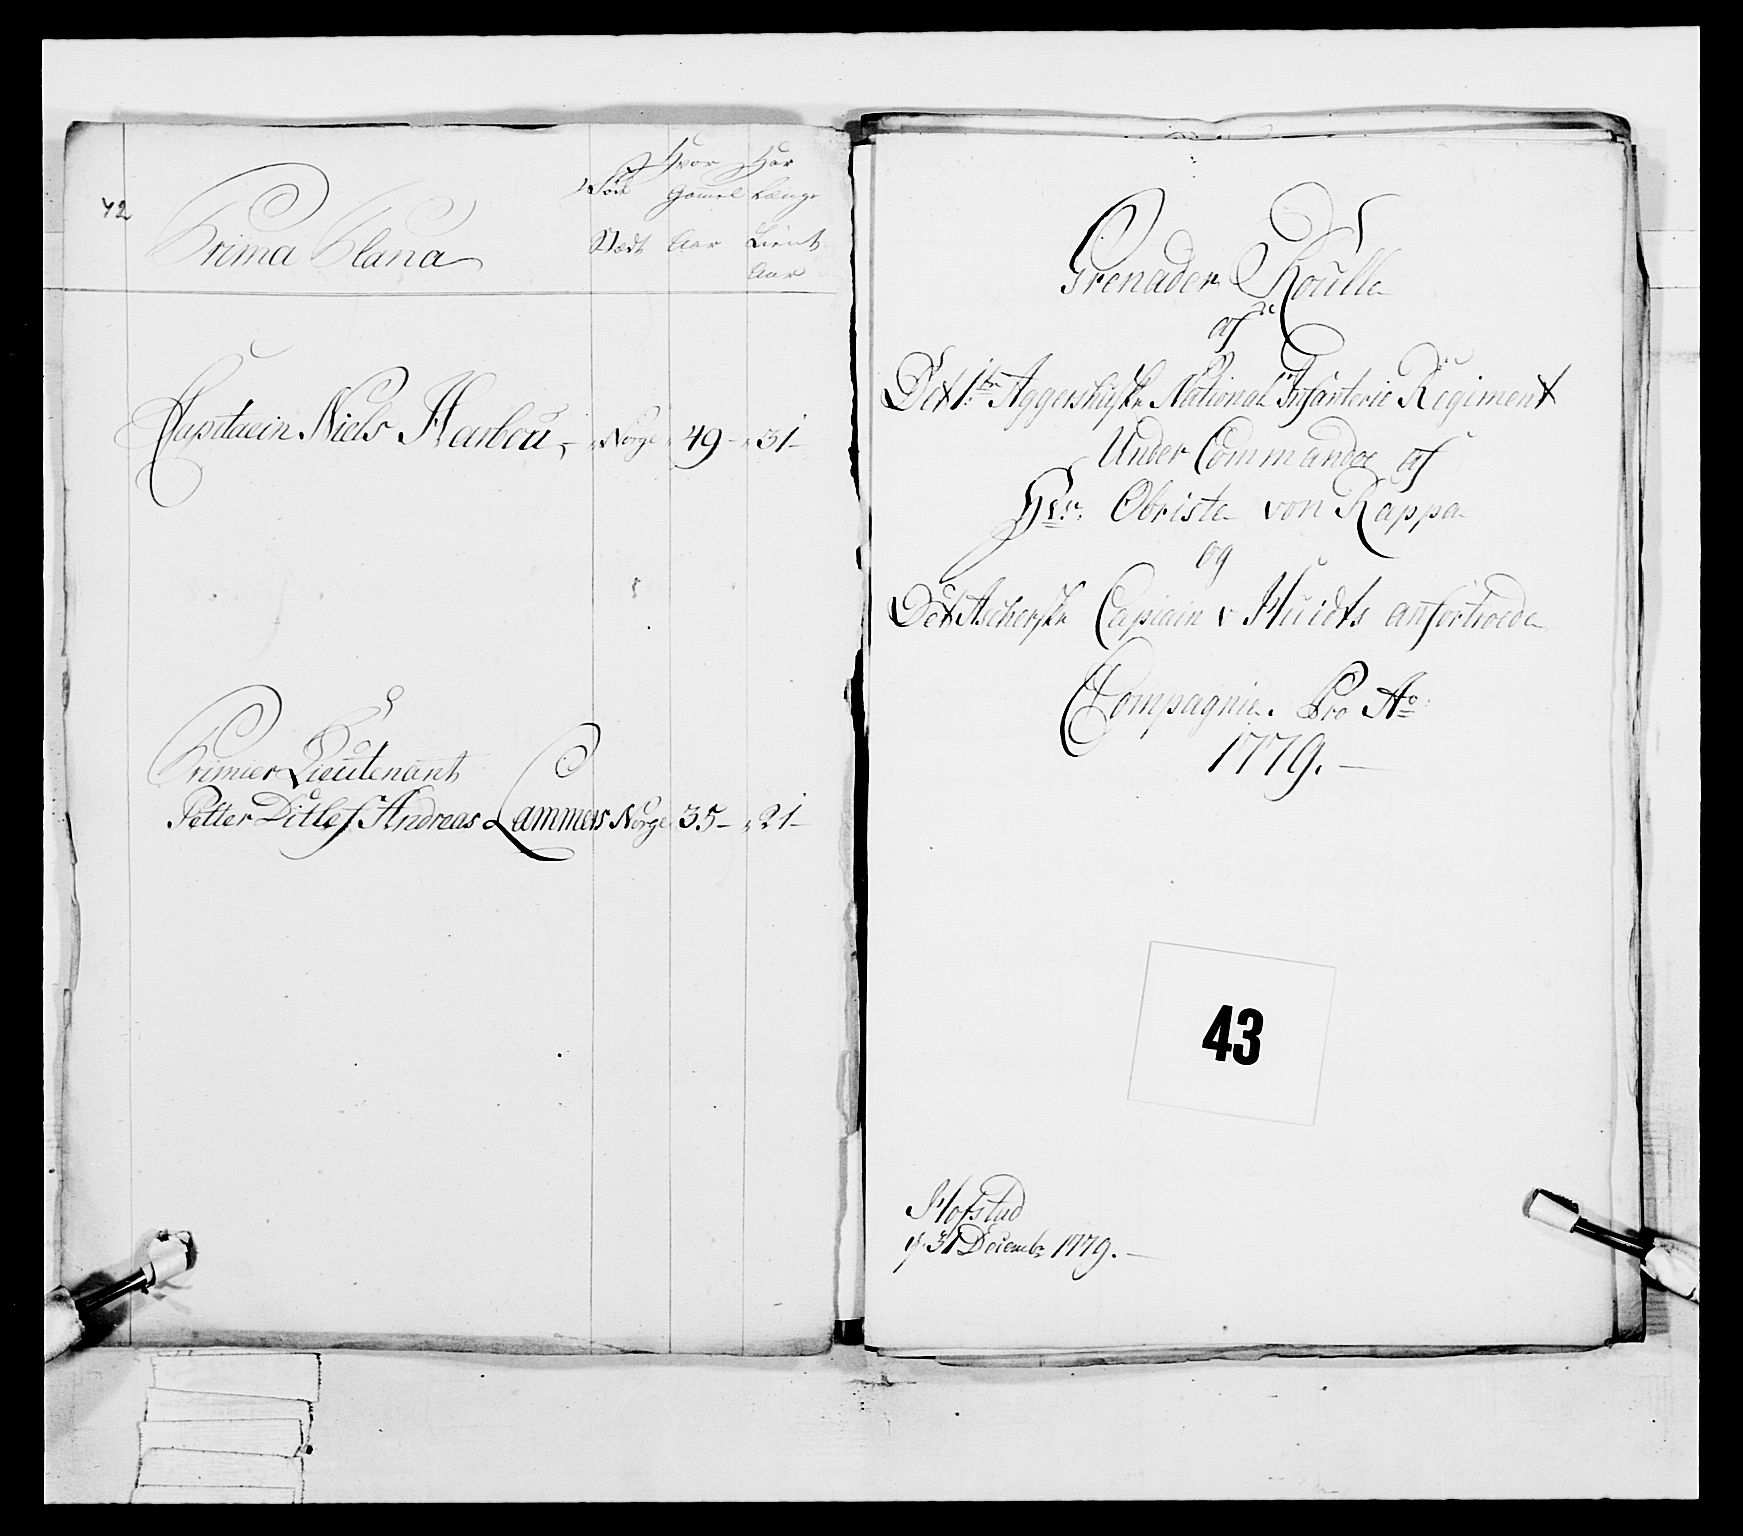 42
Prima Plana
Føde Stædt
Hvor Gamel Aar
Har Længe Tient Aar
Capitaein Niels Harbou, Norge 49 - 31 -
Premier Lieutenant
Petter Ditlef Andreas Lammers Norge 35 - 21 -
Grenadeer Roulle
af
Det 1ste Aggershusiske National Infanterie Regiment
Under Commando af
Hr: Obriste von Kappe
og
Det Ascherske Capiain v Huidts anfortroede
Compagnie. Pro Ao:
1779. -
43
Hofstad
d. 31 Decembr 1779. -